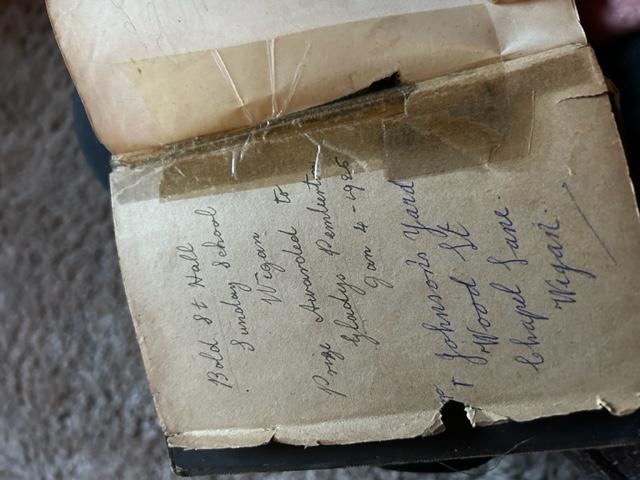 Bold St Hall
Sunday School
Wigan
Prize Awarded to
Gladys Pemberton
Jan 4 - 1925
Johnson's Yard
Wood St
Chapel Lane.
Wigan.